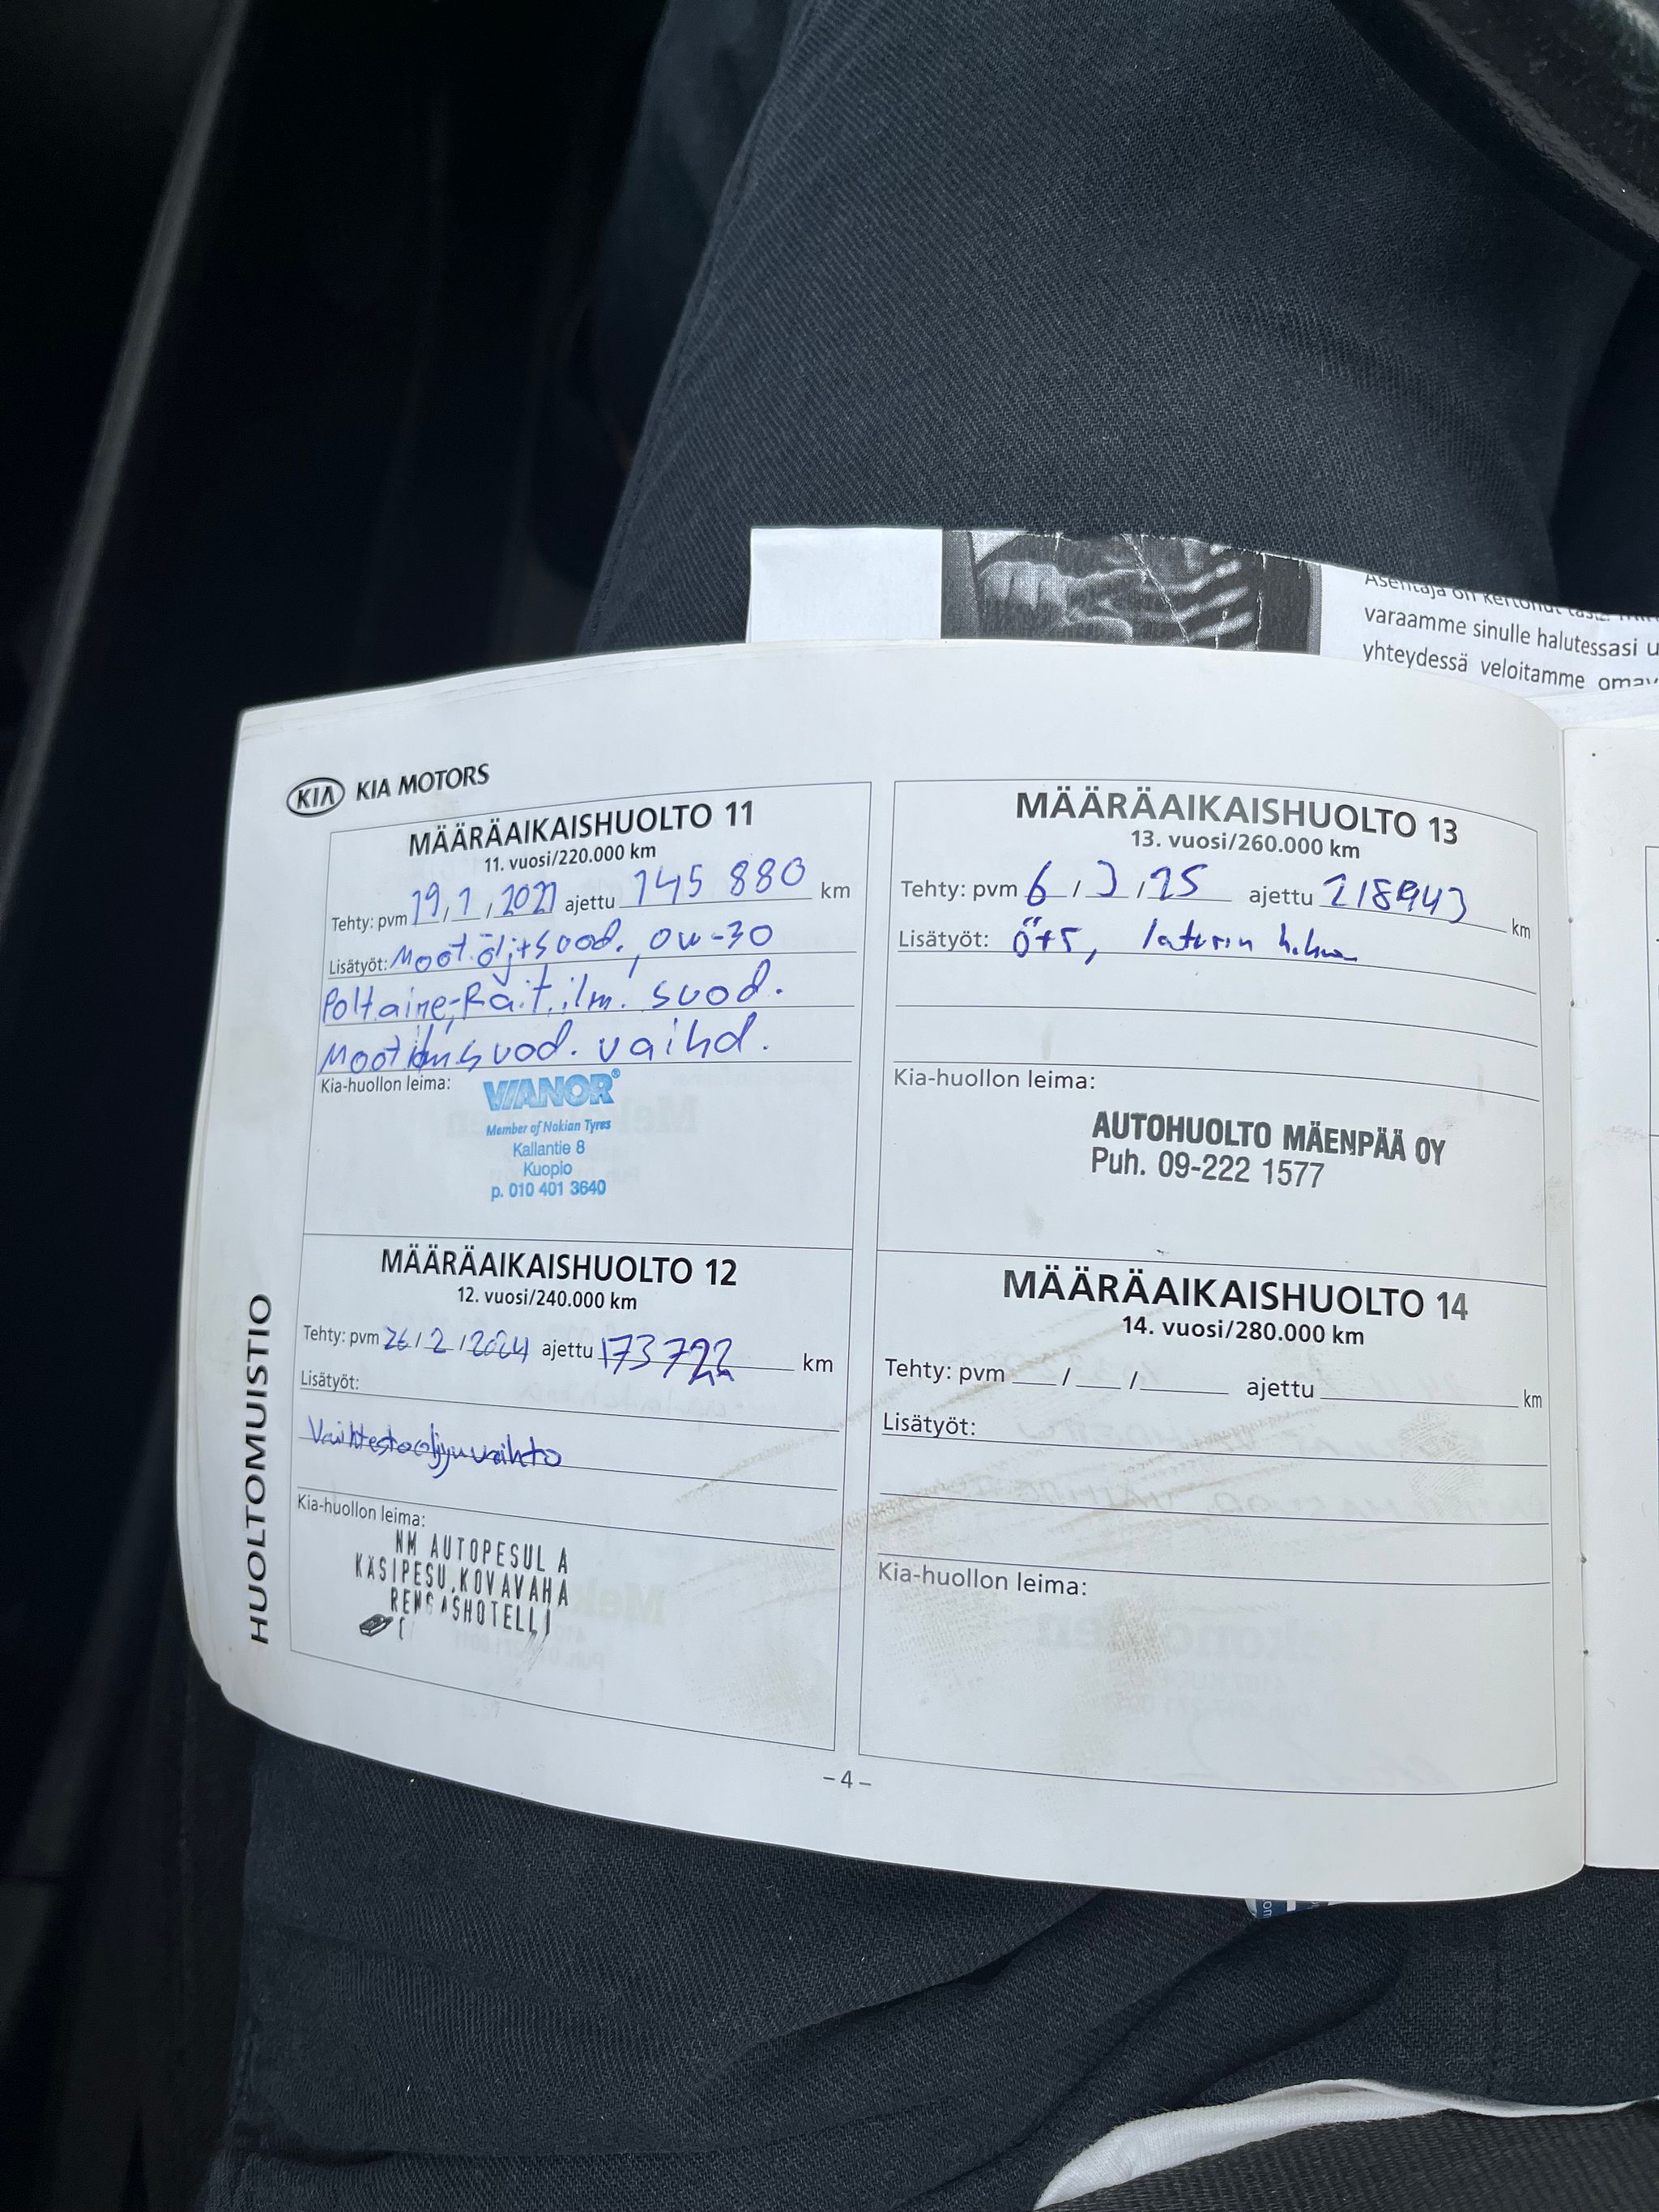 Asentaja on kertonut
varaamme sinulle halutessasi u
yhteydessä veloitamme omav
KIA KIA MOTORS
MÄÄRÄAIKAISHUOLTO 11
11. vuosi/220.000 km
Tehty: pvm 19/1/2021 ajettu 145 880 km
Lisätyöt: Moot.ölj+suod. 0w-30
Poltaine, Rait.ilm. suod.
suod. vaihd.
Kia-huollon leima:
VIANOR®
Member of Nokian Tyres
Kallantie 8
Kuopio
p. 010 401 3640
MÄÄRÄAIKAISHUOLTO 12
12. vuosi/240.000 km
Tehty: pvm 26/2/2024 ajettu 173722 km
Lisätyöt:
Vaihtestoöljynvaihto
Kia-huollon leima:
NM AUTOPESUL A
KÄSIPESU,KOVAVAHA
RENGASHOTELLI
MÄÄRÄAIKAISHUOLTO 13
13. vuosi/260.000 km
Tehty: pvm 6/3/25 ajettu 218943 km
Lisätyöt: Ö+S, laturin hihna
Kia-huollon leima:
AUTOHUOLTO MÄENPÄÄ OY
Puh. 09-222 1577
MÄÄRÄAIKAISHUOLTO 14
14. vuosi/280.000 km
Tehty: pvm __/__/____ ajettu ________ km
Lisätyöt:
Kia-huollon leima:
HUOLTOMUISTIO
–4–